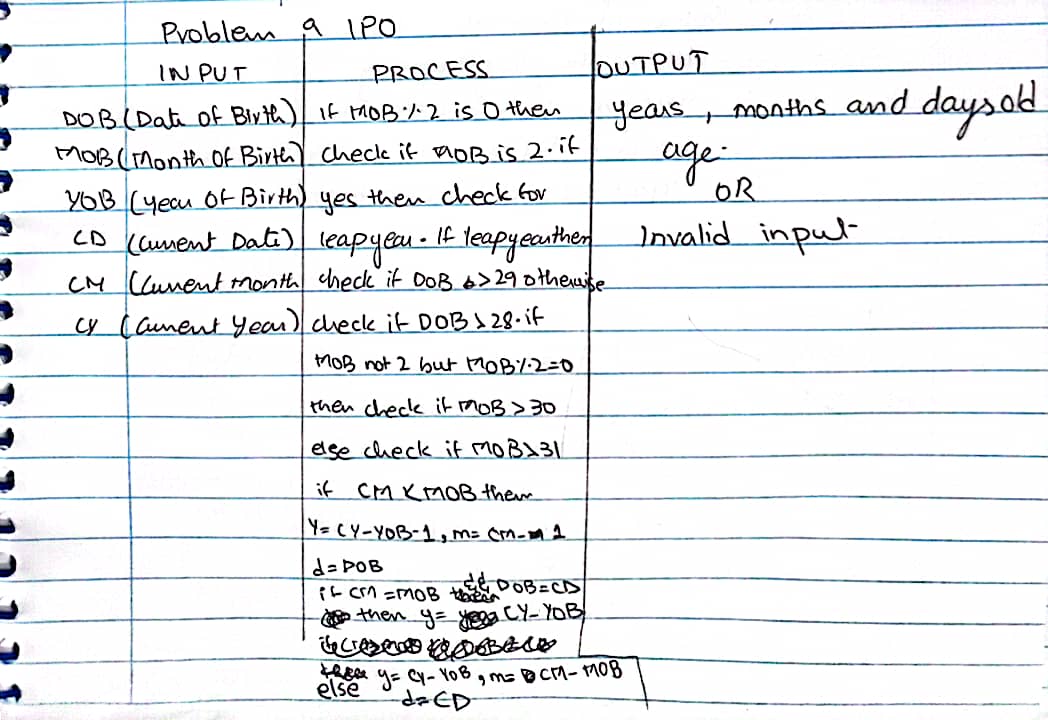 Problem 9 IPO
INPUT PROCESS OUTPUT
DOB (Date of Birth) If MOB % 2 is 0 then years, months and days old
MOB (Month Of Birth) check if MOB is 2. if age.
YOB (year Of Birth) yes then check for OR
CD (Current Date) leapyear. If leapyear then Invalid input
CM (Current month check if DOB >29 otherwise
CY (Current Year) check if DOB > 28. if
MOB not 2 but MOB % 2=0
then check if MOB > 30
else check if MOB > 31
if CM < MOB then
Y= CY-YOB-1, m= CM-1
d= DOB
if CM = MOB && DOB=CD
then y= CY-YOB
y= CY-YOB, m= CM-MOB
else d= CD